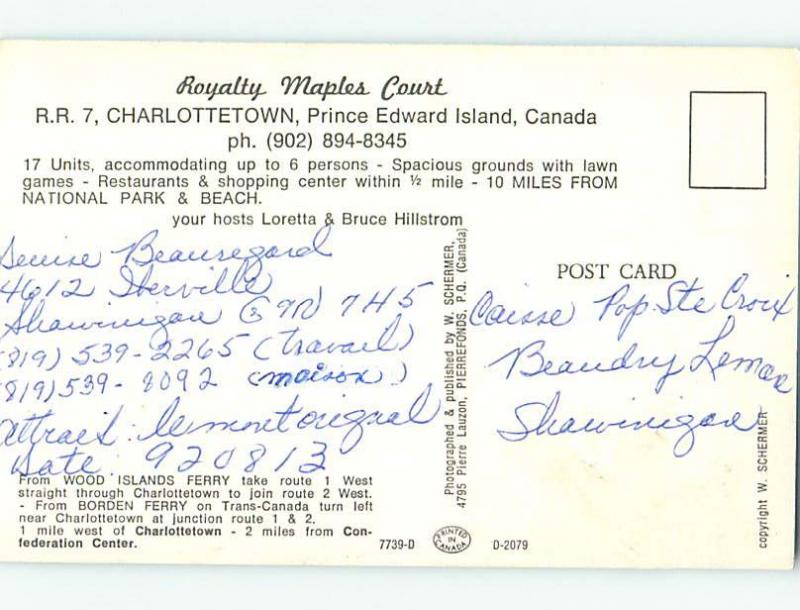 Royalty Maples Court
R.R. 7, CHARLOTTETOWN, Prince Edward Island, Canada
ph. (902) 894-8345
17 Units, accommodating up to 6 persons - Spacious grounds with lawn
games - Restaurants & shopping center within ½ mile - 10 MILES FROM
NATIONAL PARK & BEACH.
your hosts Loretta & Bruce Hillstrom
Denise Beauregard
4612 Iberville
Shawinigan G9N 7H5
(819) 539-2265 (travail)
(819) 539-8092 (maison)
attrait: le mont orignal
Date 920813
From WOOD ISLANDS FERRY take route 1 West
straight through Charlottetown to join route 2 West.
- From BORDEN FERRY on Trans-Canada turn left
near Charlottetown at junction route 1 & 2.
1 mile west of Charlottetown - 2 miles from Con-
federation Center.
7739-D
PRINTED IN CANADA
D-2079
Photographed & published by W. SCHERMER,
4795 Pierre Lauzon, PIERREFONDS, P.Q. (Canada)
POST CARD
Caisse Pop. Ste Croix
Beaudry Lemay
Shawinigan
copyright W. SCHERMER